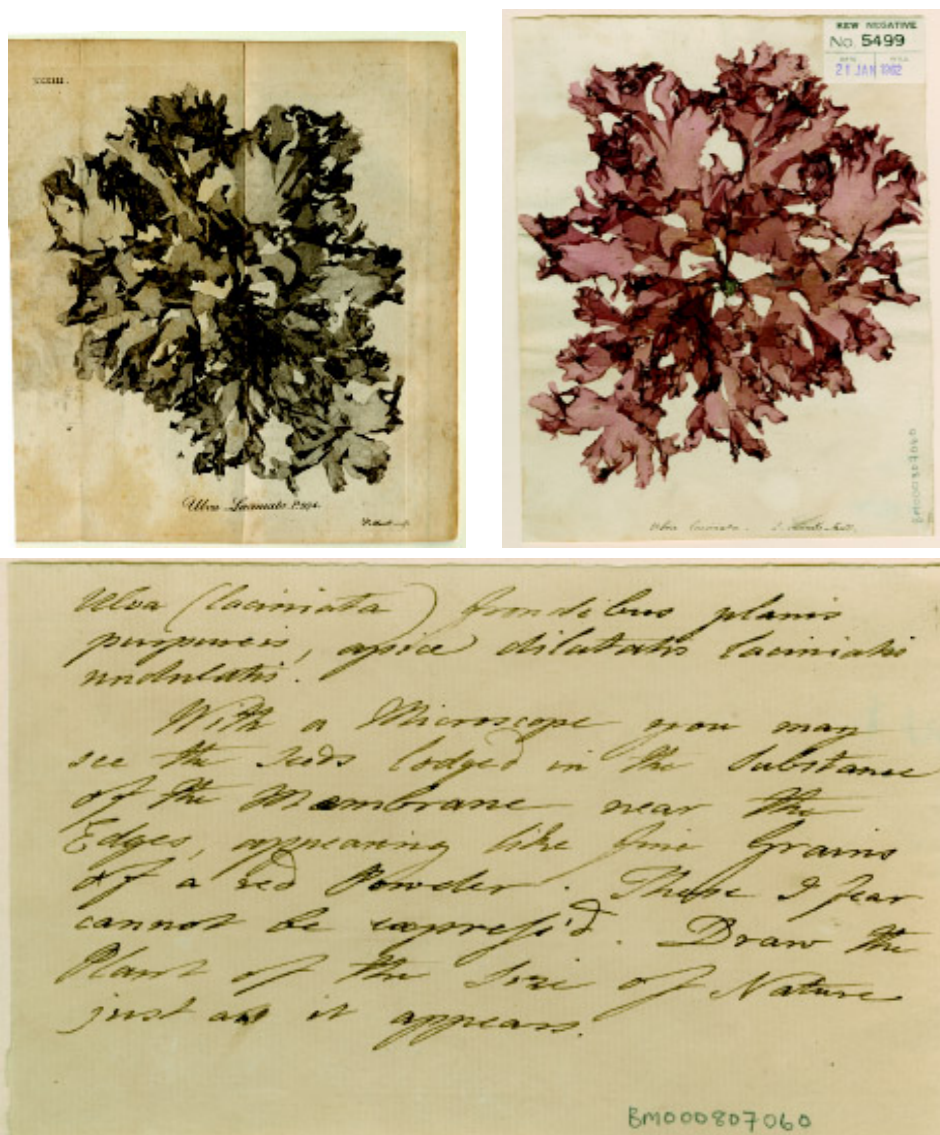 XXXIII.
Ulva Laciniata P. 974.
KEW NEGATIVE
No. 5499
21 JAN 1962
Ulva laciniata.
BM000807060
Ulva (laciniata) frondibus planis
purpureis, apice dilatatis laciniatis
undulatis.
With a Microscope you may
see the Seeds lodged in the Substance
of the Membrane near the
Edges, appearing like fine Grains
of a red Powder. These I fear
cannot be express'd. Draw the
Plant of the Size of Nature
just as it appears.
BM000807060